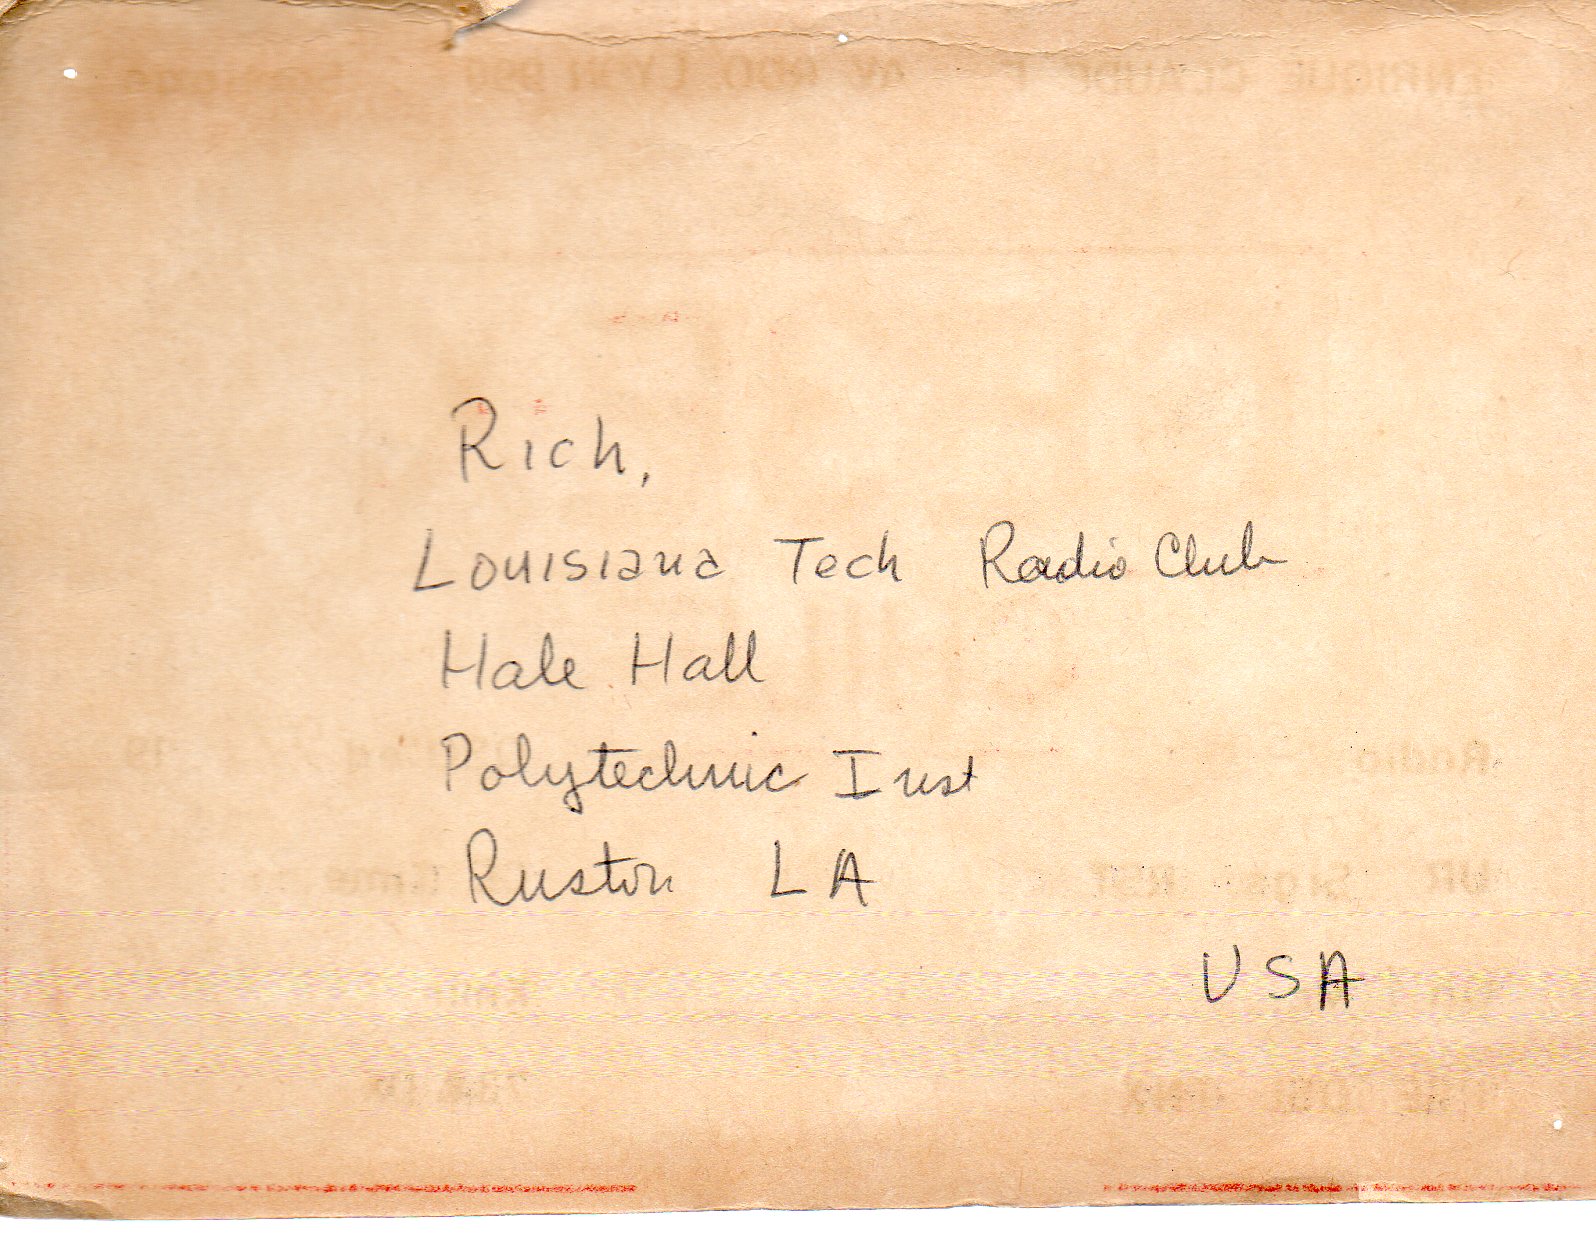 Rich,
Louisiana Tech Radio Club
Hale Hall
Polytechnic Inst
Ruston LA
USA